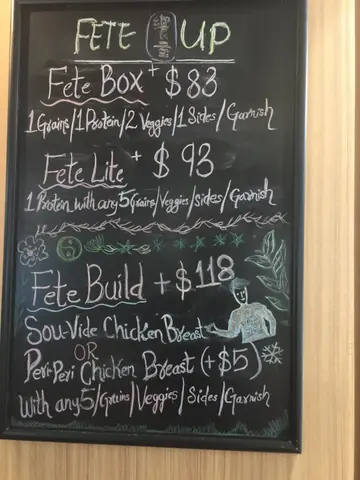 FETE UP
Fete Box + $83
1Grains/1Protein/2 Veggies/1 Sides/Garnish
Fete Lite + $ 93
1 Protein with any 5 Grains/Veggies/sides/Garnish
Fete Build + $118
Sou-Vide Chicken Breast
OR
Peri-Peri Chicken Breast (+$5)
With any 5/Grains/Veggies/Sides/Garnish